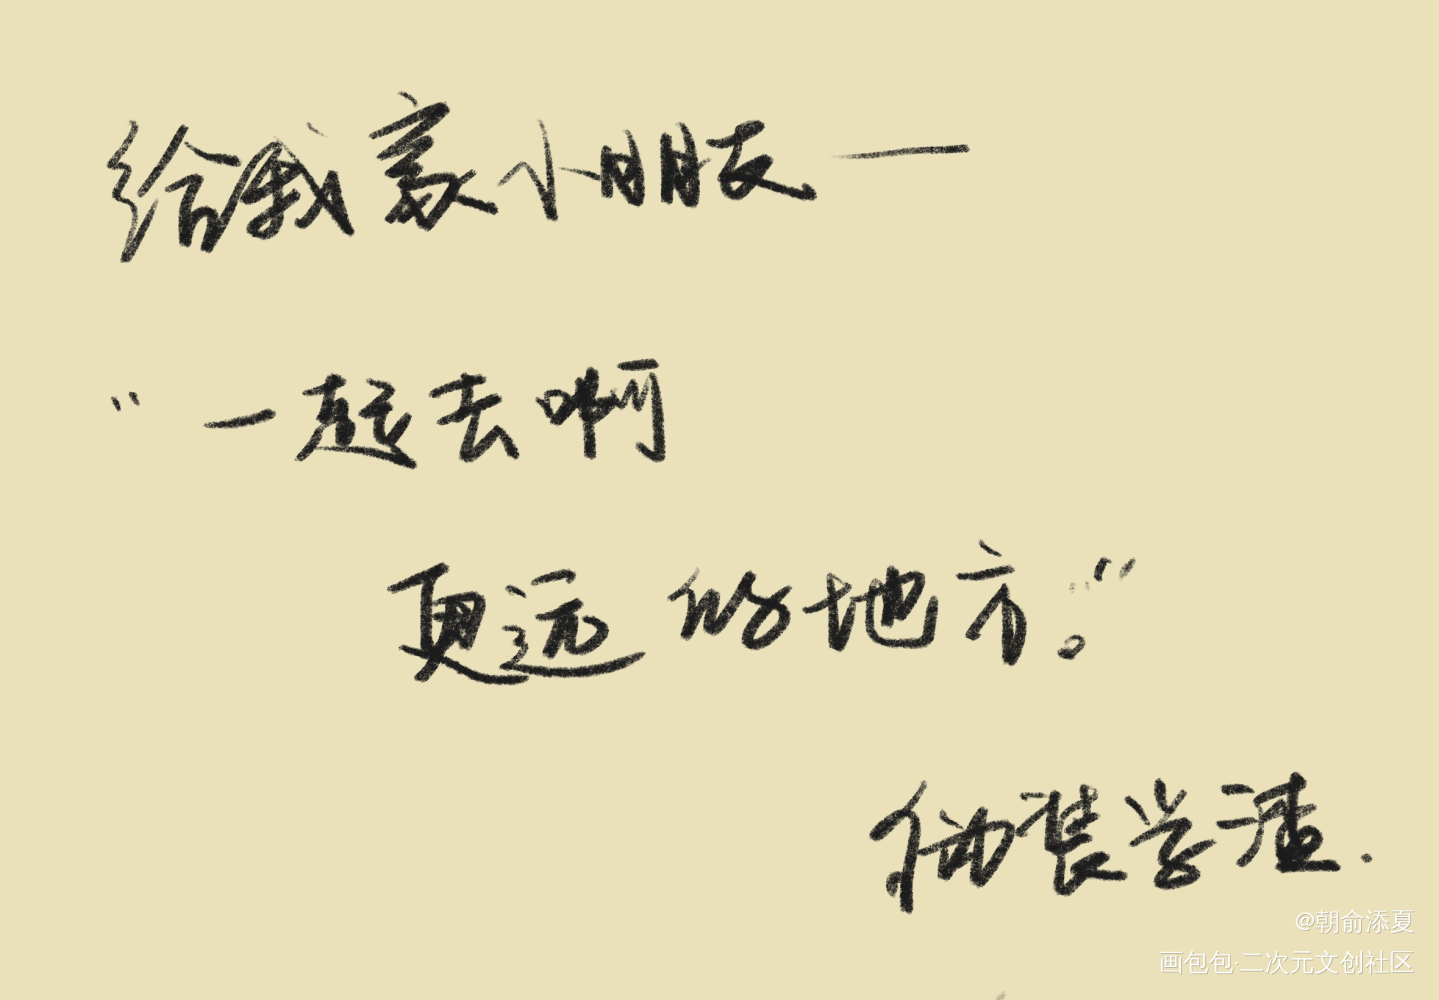 给我家小朋友一
“一起去啊
更远的地方。”
伪装学渣.
@朝俞添夏
画包包·二次元文创社区